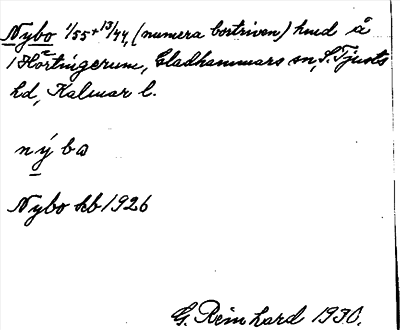 Nybo 1/55 + 13/44, (numera bortriven) hmd å
1 Hörtingerum, Gladhammars sn, S. Tjusts
hd, Kalmar l.
nýbo
Nybo kb 1926
G. Reinhard 1930.